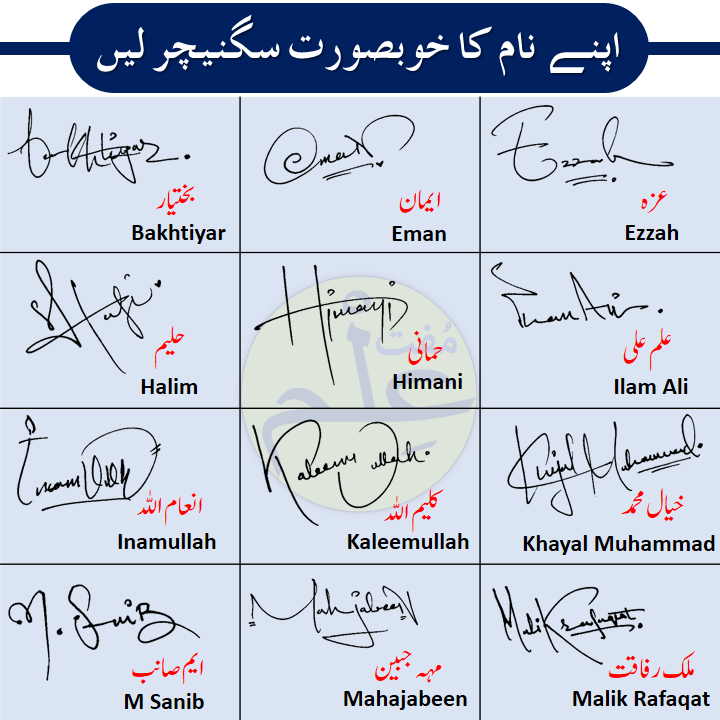 اپنے نام کا خوبصورت سگنیچر لیں
Bakhtiyar
بختیار
Bakhtiyar
Eman
ایمان
Eman
Ezzah
عزہ
Ezzah
حلیم
Halim
Himani
حمانی
Himani
علم علی
Ilam Ali
انعام اللہ
Inamullah
Kaleem Ullah
کلیم اللہ
Kaleemullah
خیال محمد
Khayal Muhammad
ایم صانب
M Sanib
Mahjabeen
مہہ جبین
Mahajabeen
Malik Rafaqat
ملک رفاقت
Malik Rafaqat
مُفت
عِلم